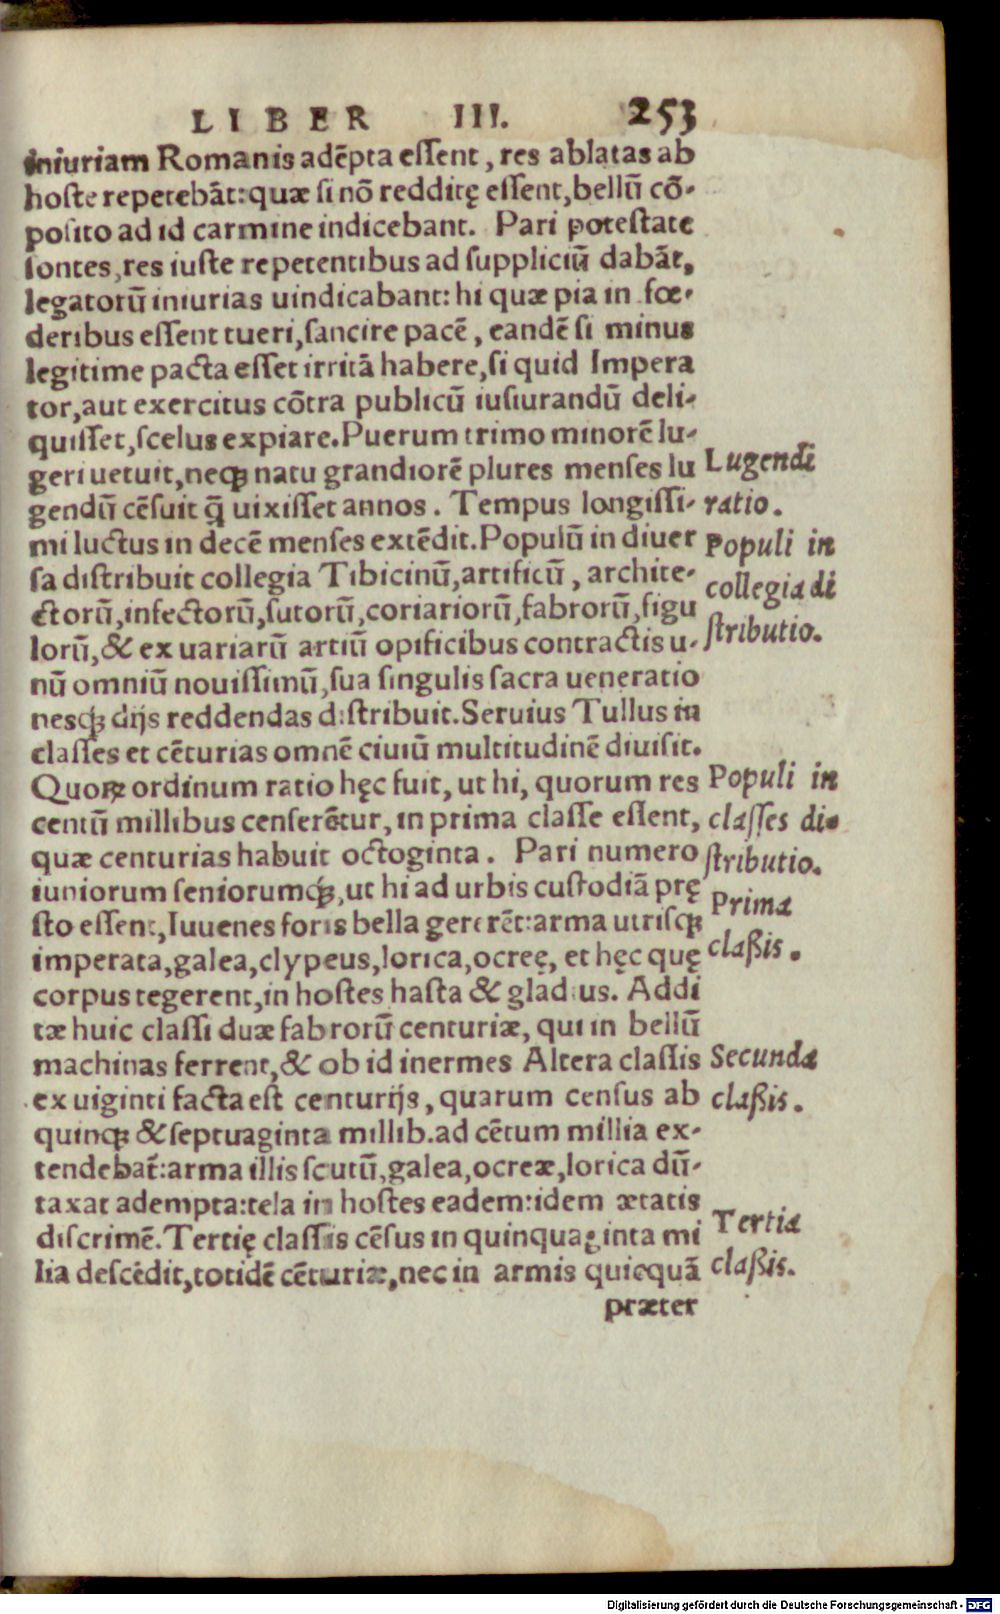 LIBER III. 253
iniuriam Romanis adēpta eſſent, res ablatas ab
hoſte repetebāt: quæ ſi nō redditę eſſent, bellū cō-
poſito ad id carmine indicebant. Pari poteſtate
ſontes, res iuſte repetentibus ad ſuppliciū dabāt,
legatorū iniurias uindicabant: hi quæ pia in fœ-
deribus eſſent tueri, ſancire pacē, eandē ſi minus
legitime pacta eſſet irritā habere, ſi quid Impera
tor, aut exercitus cōtra publicū iuſiurandū deli-
quiſſet, ſcelus expiare. Puerum trimo minorē lu-
geri uetuit, neq; natu grandiorē plures menſes lu
gendū cēſuit q̃ uixiſſet annos. Tempus longiſſi-
mi luctus in decē menſes extēdit. Populū in diuer
ſa diſtribuit collegia Tibicinū, artificū, archite-
ctorū, infectorū, ſutorū, coriariorū, fabrorū, figu
lorū, & ex uariarū artiū opificibus contractis u-
nū omniū nouiſſimū, ſua ſingulis ſacra ueneratio
nesq; dijs reddendas diſtribuit. Seruius Tullus in
claſſes et cēturias omnē ciuiū multitudinē diuiſit.
Quoꝝ ordinum ratio hęc fuit, ut hi, quorum res
centū millibus cenſerētur, in prima claſſe eſſent,
quæ centurias habuit octoginta. Pari numero
iuniorum ſeniorumq;, ut hi ad urbis cuſtodiā prę
ſto eſſent, Iuuenes foris bella gererēt: arma utriſq;
imperata, galea, clypeus, lorica, ocreę, et hęc quę
corpus tegerent, in hoſtes haſta & gladius. Addi
tæ huic claſſi duæ fabrorū centuriæ, qui in bellū
machinas ferrent, & ob id inermes Altera claſſis
ex uiginti facta eſt centurijs, quarum cenſus ab
quinq; & ſeptuaginta millib. ad cētum millia ex-
tendebat̃: arma illis ſcutū, galea, ocreæ, lorica dū-
taxat adempta: tela in hoſtes eadem: idem ætatis
diſcrimē. Tertię claſſis cēſus in quinquaginta mi
lia deſcēdit, totidē cēturiæ, nec in armis quicquā
præter
Lugendi
ratio.
Populi in
collegia di
ſtributio.
Populi in
claſſes di-
ſtributio.
Prima
claßis.
Secunda
claßis.
Tertia
claßis.
Digitalisierung gefördert durch die Deutsche Forschungsgemeinschaft - DFG